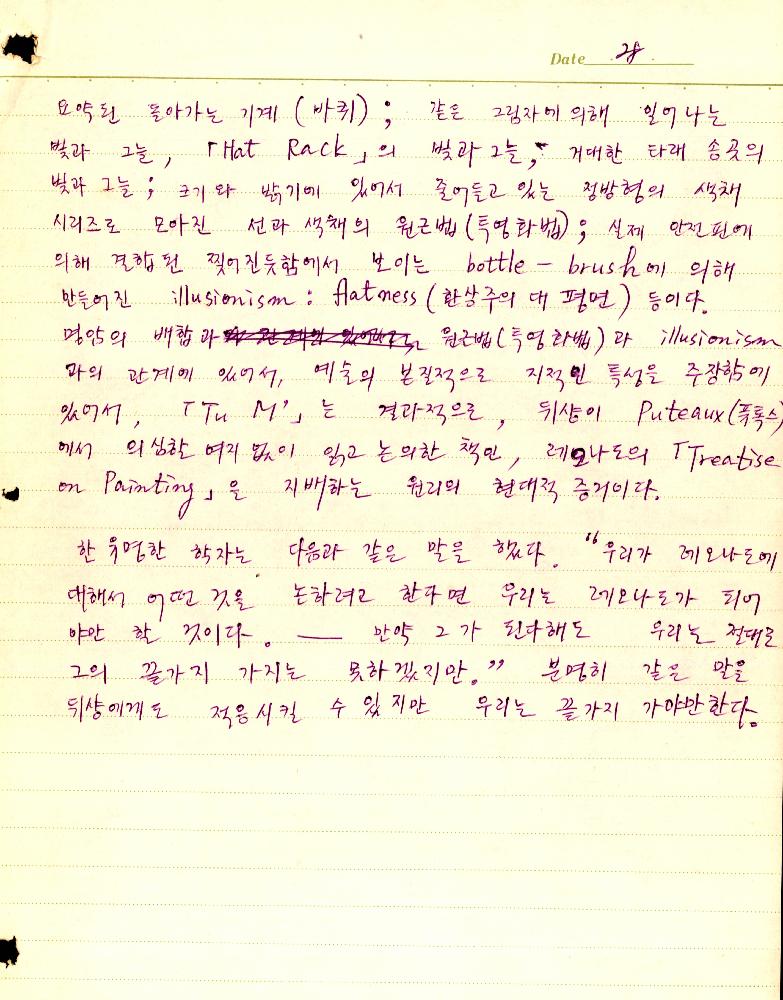 Date 28
요약된 돌아가는 기계 (바퀴) ; 같은 그림자에 의해 일어나는
빛과 그늘, 「Hat Rack」의 빛과 그늘; 거대한 타래 송곳의
빛과 그늘 ; 크기와 밝기에 있어서 줄어들고 있는 정방형의 색채
시리즈로 모아진 선과 색채의 원근법(특영화법) ; 실제 안전핀에
의해 결합된 찢어진듯함에서 보이는 bottle - brush에 의해
만들어진 illusionism : flatness (환상주의 대 평면) 등이다.
명암의 배합과 원근법(특영화법)과 illusionism
과의 관계에 있어서, 예술의 본질적으로 지적인 특성을 주장함에
있어서, 「Tu M'」는 결과적으로, 뒤샹이 Puteaux(퓨톡스)
에서 의심할 여지 없이 읽고 논의한 책인, 레오나도의 「Treatise
on Painting」을 지배하는 원리의 현대적 증거이다.
한 유명한 학자는 다음과 같은 말을 했다. "우리가 레오나도에
대해서 어떤 것을 논하려고 한다면 우리는 레오나도가 되어
야만 할 것이다. — 만약 그가 된다해도 우리는 절대로
그의 끝가지 가지는 못하겠지만." 분명히 같은 말을
뒤샹에게도 적용시킬 수 있지만 우리는 끝가지 가야만한다.